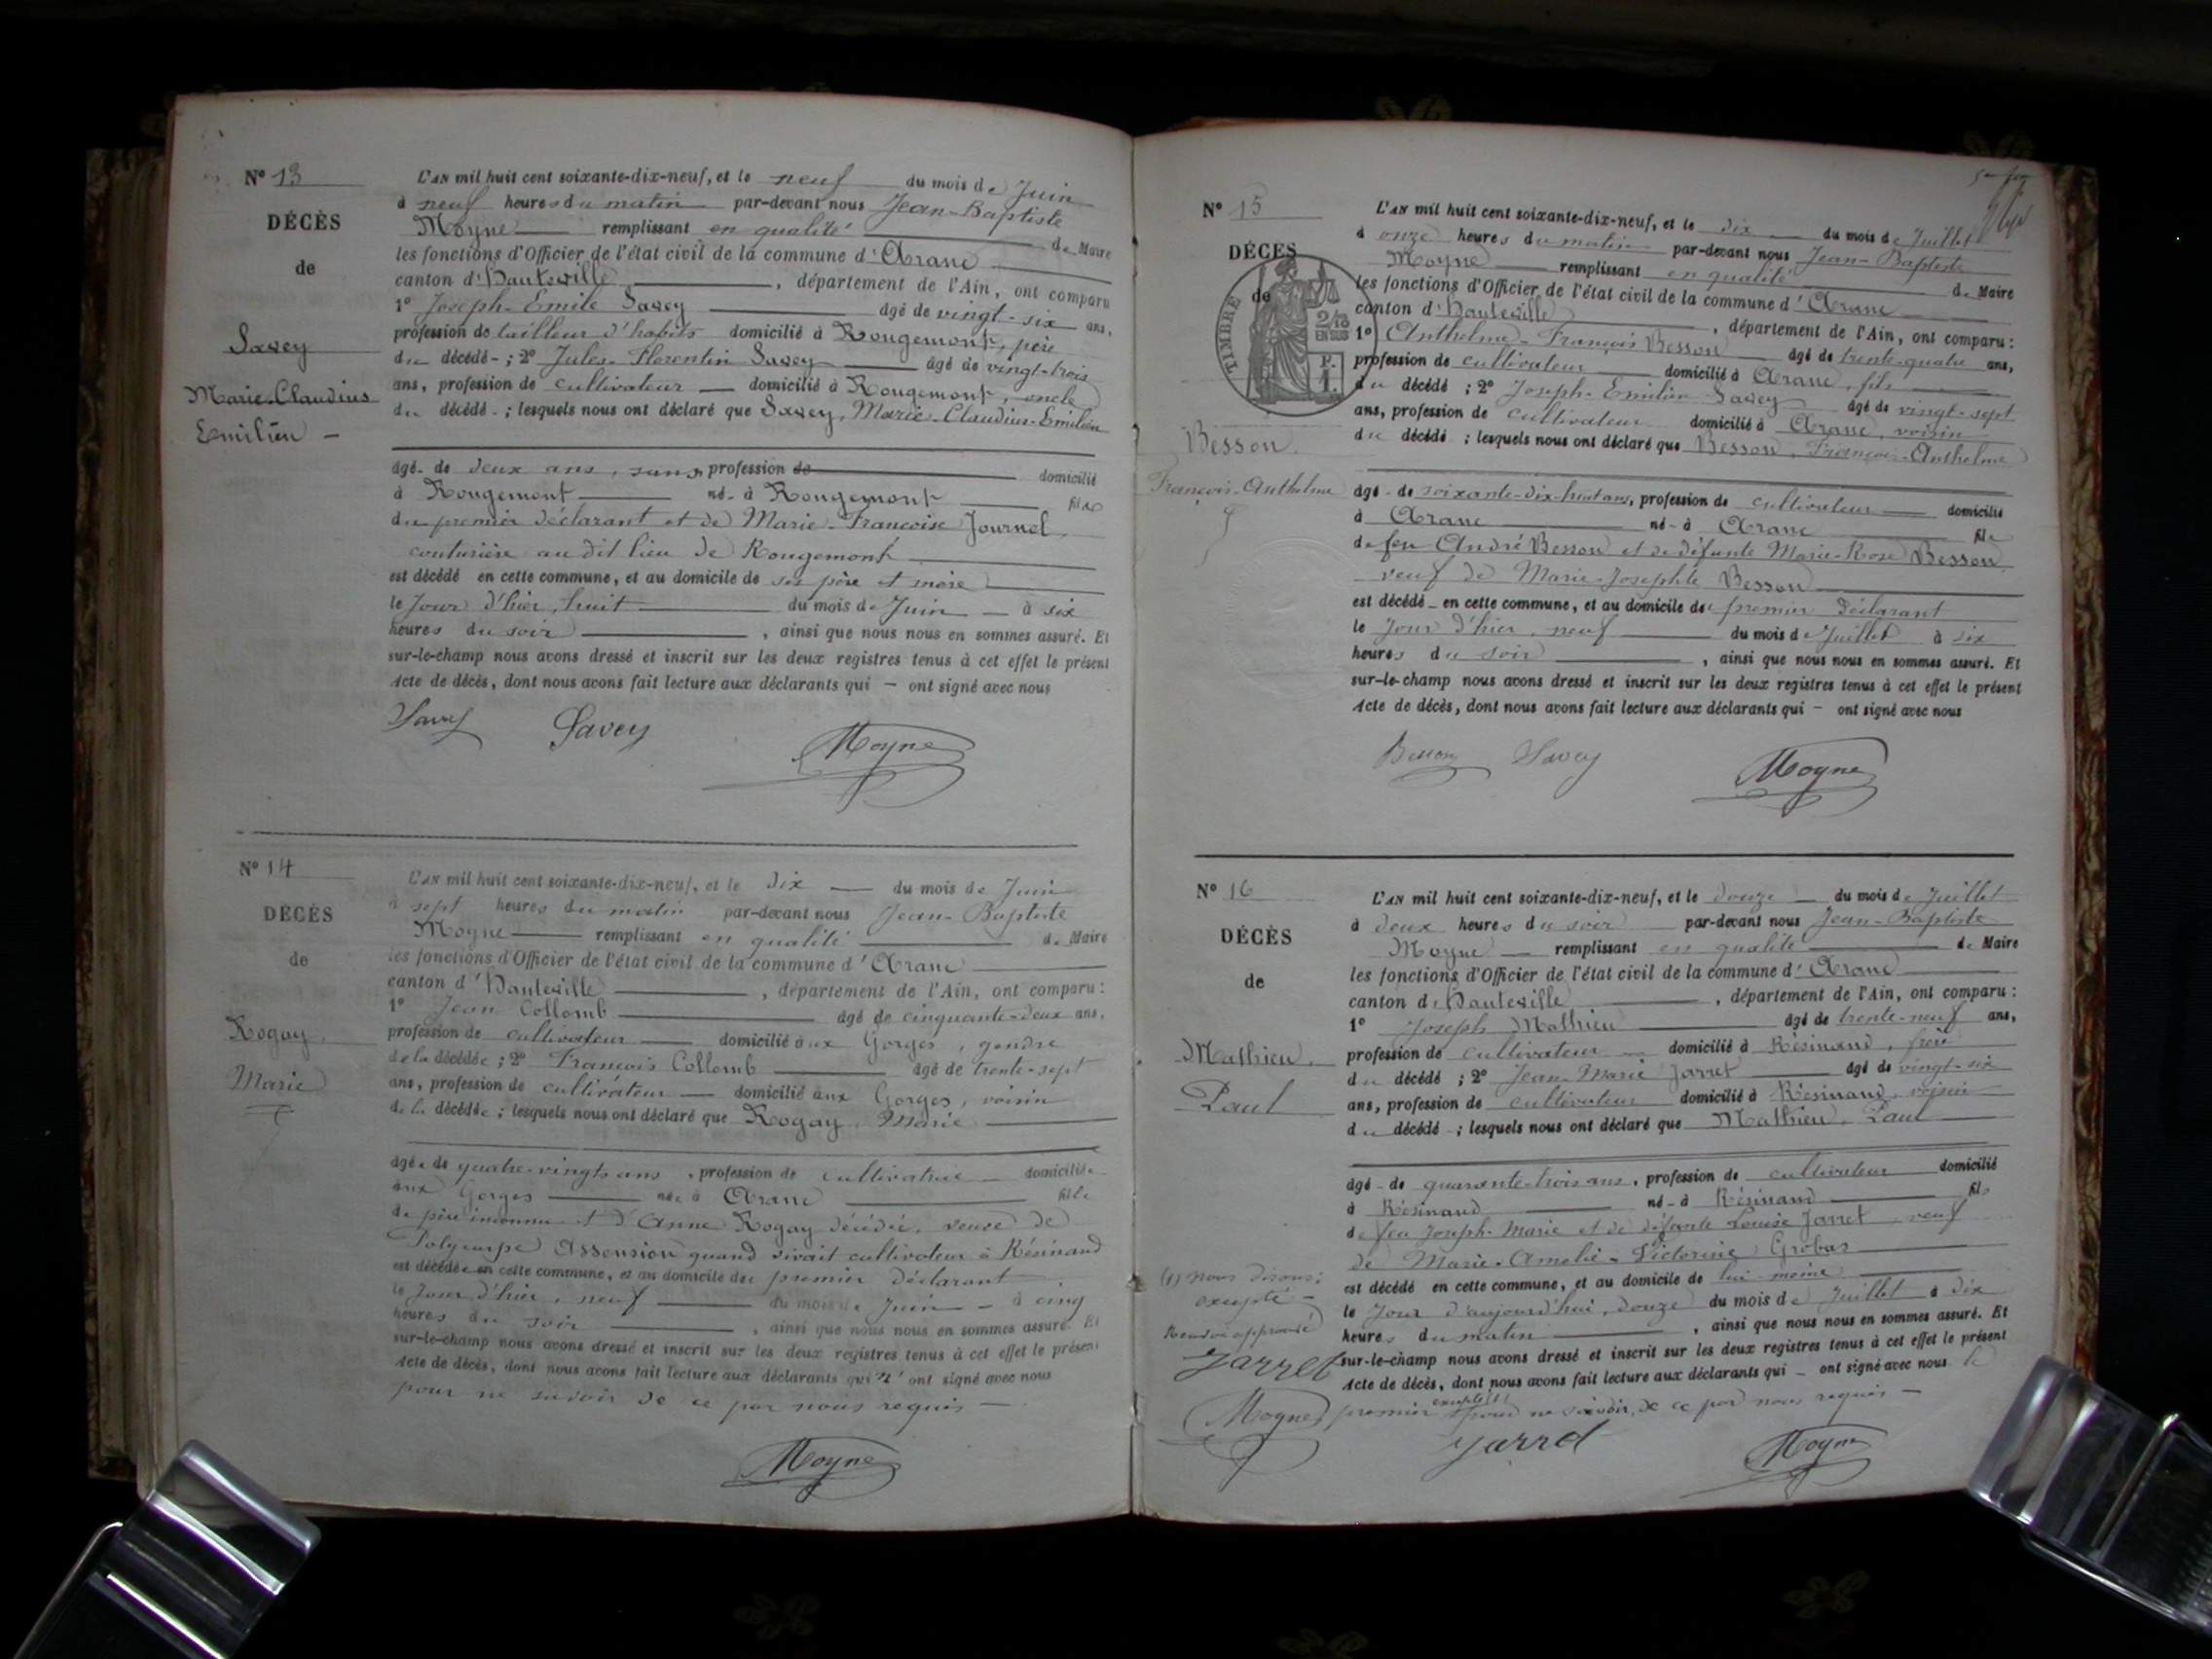 Nº 13
DÉCÈS
de
Savey
Marie-Claudius
Emilien
L'AN mil huit cent soixante-dix-neuf, et le neuf du mois de Juin
à neuf heures du matin par-devant nous Jean-Baptiste
Moyne remplissant en qualité de Maire
les fonctions d'Officier de l'état civil de la commune d'Aranc
canton d'Hauteville, département de l'Ain, ont comparu
1º Joseph-Emile Savey âgé de vingt-six ans,
profession de tailleur d'habits domicilié à Rougemont, père
du décédé ; 2º Jules-Florentin Savey âgé de vingt-trois
ans, profession de cultivateur domicilié à Rougemont, oncle
du décédé ; lesquels nous ont déclaré que Savey, Marie-Claudius-Emilien
âgé de deux ans, sans profession de domicilié
à Rougemont né à Rougemont fils
du premier déclarant et de Marie-Françoise Journel,
couturière au dit lieu de Rougemont
est décédé en cette commune, et au domicile de ses père et mère
le Jour d'hier, huit du mois de Juin à six
heures du soir, ainsi que nous nous en sommes assuré. Et
sur-le-champ nous avons dressé et inscrit sur les deux registres tenus à cet effet le présent
Acte de décès, dont nous avons fait lecture aux déclarants qui – ont signé avec nous
Savey Savey Moyne
Nº 14
DÉCÈS
de
Rogay,
Marie
L'AN mil huit cent soixante-dix-neuf, et le dix du mois de Juin
à sept heures du matin par-devant nous Jean-Baptiste
Moyne remplissant en qualité de Maire
les fonctions d'Officier de l'état civil de la commune d'Aranc
canton d'Hauteville, département de l'Ain, ont comparu :
1º Jean Collomb âgé de cinquante-deux ans,
profession de cultivateur domicilié aux Gorges, gendre
de la décédée ; 2º François Collomb âgé de trente-sept
ans, profession de cultivateur domicilié aux Gorges, voisin
de la décédée ; lesquels nous ont déclaré que Rogay, Marie
âgée de quatre-vingts ans, profession de cultivatrice domiciliée
aux Gorges née à Aranc fille
de père inconnu et d'Anne Rogay décédée, veuve de
Polycarpe Assension quand vivait cultivateur à Résinand
est décédée en cette commune, et au domicile du premier déclarant
le Jour d'hier, neuf du mois de Juin à cinq
heures du soir, ainsi que nous nous en sommes assuré. Et
sur-le-champ nous avons dressé et inscrit sur les deux registres tenus à cet effet le présent
Acte de décès, dont nous avons fait lecture aux déclarants qui n'ont signé avec nous
pour ne savoir de ce par nous requis –
Moyne
Nº 15
DÉCÈS
de
TIMBRE
2/10
EN SUS
P.
1.
Besson,
François-Anthelme
L'AN mil huit cent soixante-dix-neuf, et le dix du mois de Juillet
à onze heures du matin par-devant nous Jean-Baptiste
Moyne remplissant en qualité de Maire
les fonctions d'Officier de l'état civil de la commune d'Aranc
canton d'Hauteville, département de l'Ain, ont comparu :
1º Anthelme-François Besson âgé de trente-quatre ans,
profession de cultivateur domicilié à Aranc, fils
du décédé ; 2º Joseph-Emilien Savey âgé de vingt-sept
ans, profession de cultivateur domicilié à Aranc, voisin
du décédé ; lesquels nous ont déclaré que Besson, François-Anthelme
âgé de soixante-dix-huit ans, profession de cultivateur domicilié
à Aranc né à Aranc fils
de feu André Besson et de défunte Marie-Rose Besson,
veuf de Marie-Josephte Besson
est décédé en cette commune, et au domicile du premier déclarant
le Jour d'hier, neuf du mois de Juillet à six
heures du soir, ainsi que nous nous en sommes assuré. Et
sur-le-champ nous avons dressé et inscrit sur les deux registres tenus à cet effet le présent
Acte de décès, dont nous avons fait lecture aux déclarants qui – ont signé avec nous
Besson Savey Moyne
Nº 16
DÉCÈS
de
Mathieu,
Paul
L'AN mil huit cent soixante-dix-neuf, et le douze du mois de Juillet
à deux heures du soir par-devant nous Jean-Baptiste
Moyne remplissant en qualité de Maire
les fonctions d'Officier de l'état civil de la commune d'Aranc
canton d'Hauteville, département de l'Ain, ont comparu :
1º Joseph Mathieu âgé de trente-neuf ans,
profession de cultivateur domicilié à Résinand, frère
du décédé ; 2º Jean-Marie Jarret âgé de vingt-six
ans, profession de cultivateur domicilié à Résinand, voisin
du décédé ; lesquels nous ont déclaré que Mathieu, Paul
âgé de quarante-trois ans, profession de cultivateur domicilié
à Résinand né à Résinand fils
de feu Joseph-Marie et de défunte Louise Jarret, veuf
de Marie-Amelie-Victorine Grobas
est décédé en cette commune, et au domicile de lui-même
le Jour d'aujourd'hui, douze du mois de Juillet à dix
heures du matin, ainsi que nous nous en sommes assuré. Et
sur-le-champ nous avons dressé et inscrit sur les deux registres tenus à cet effet le présent
Acte de décès, dont nous avons fait lecture aux déclarants qui – ont signé avec nous le
premier excepté (1) pour ne savoir de ce par nous requis –
Jarret Moyne
(1) nous disons :
excepté –
Renvoi approuvé
Jarret
Moyne